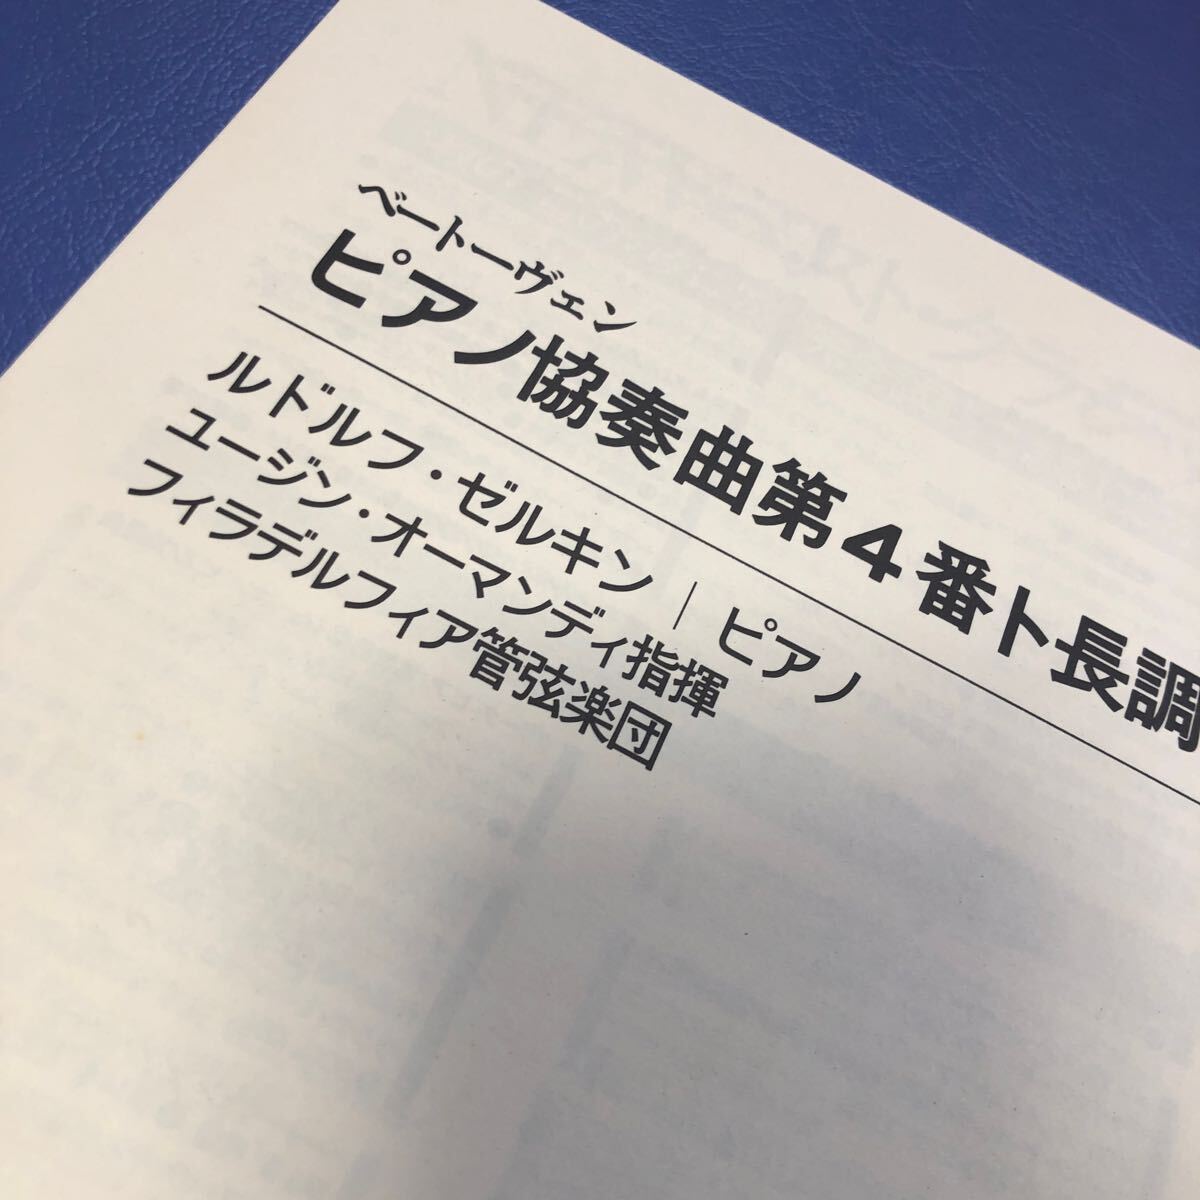 ベートーヴェン
ピアノ協奏曲第4番ト長調
ルドルフ・ゼルキン｜ピアノ
ユージン・オーマンディ指揮
フィラデルフィア管弦楽団